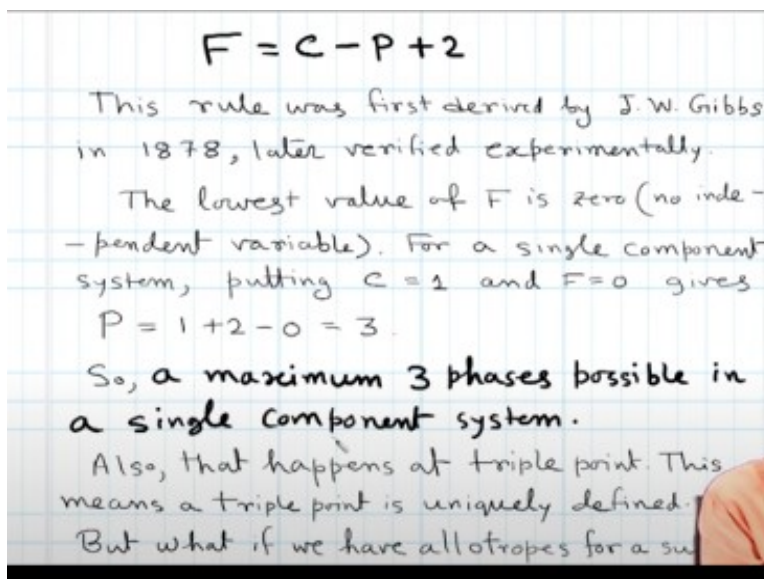 F = C - P + 2
This rule was first derived by J. W. Gibbs
in 1878, later verified experimentally.
The lowest value of F is zero (no inde-
-pendent variable). For a single component
system, putting C = 1 and F = 0 gives
P = 1 + 2 - 0 = 3.
So, a maximum 3 phases possible in
a single component system.
Also, that happens at triple point. This
means a triple point is uniquely defined.
But what if we have allotropes for a